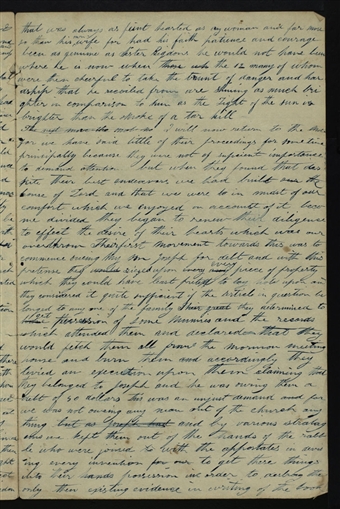 that was always as faint hearted as any woman and far more
so than his wife for had his faith patience and courage
been as genuine as Sister Rigdons he would not have been
where he is now where those who the 12 many of whom
were then cheerful to take the brunt of danger and har
dships that he recoiled from are shining as much bri
ghter in comparison to him as the light of the sun is
brighter than the stroke of a tar kill
I will now return to the mob
for we have said little of their proceedings for some time
principally because they were not of suficient importance
to demand attention but when they found that des
pite their best endeavours we had build the
house of the Lord and that we were to in midst of our
comfort which we enjoyed on account of it beca
me divided they began to renew their diligence
to effect the desire of their hearts which was our
overthrow Their first movement towards this was to
commence sueing My son Joseph for debt and with this
pretense they seized upon every piece of property
which they could have least pretext to lay claim upon and
they considered it quite sufficient if the article in question be
longed to any one of the family they determined to
get Possession of some Mummies and the records
which attended them and declared that they
would fetch them all over the Mormon meeting
house and burn them and accordingly they
levied an execution upon them claiming that
they belonged to Joseph and he was owing them a
debt of 50 dollars this was an unjust demand and for
we was not owing any man out of the church any
thing but as Joseph had and by various stratag
ems we kept them out of the hands of the rabb
le who were joined by with the apostates in devis
ing every invention for our to get these things
into their hands possession in order to destroy the
only then existing evidence in writing of the book